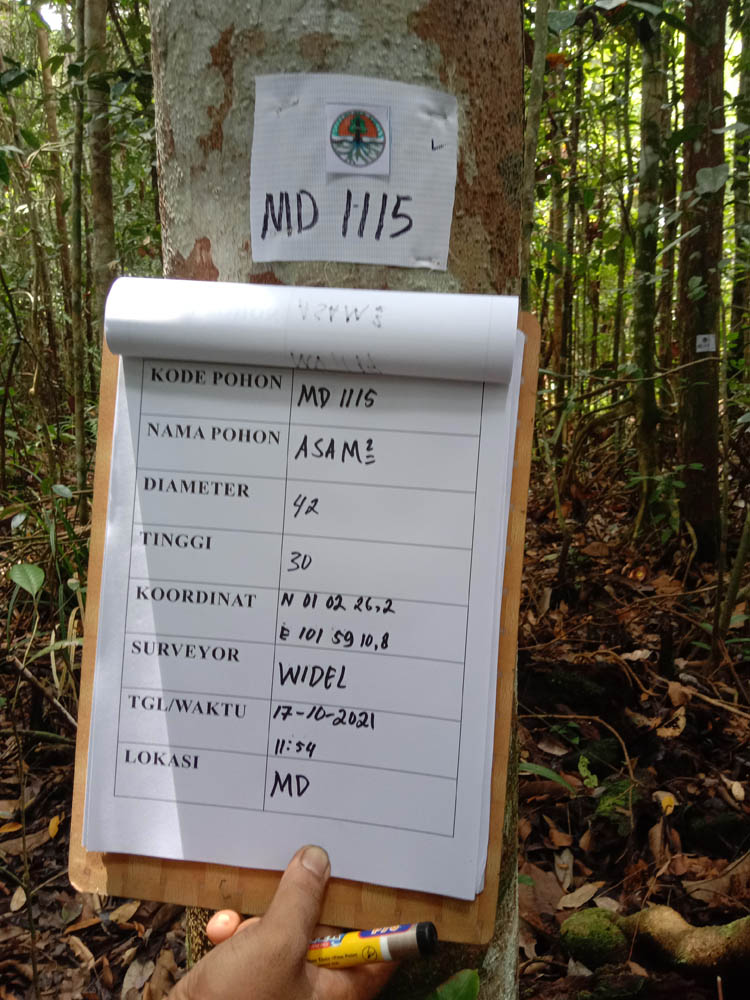 MD 1115
KODE POHON MD 1115
NAMA POHON ASAM2
DIAMETER 42
TINGGI 30
KOORDINAT N 01 02 26,2
E 101 59 10,8
SURVEYOR WIDEL
TGL/WAKTU 17-10-2021
11:54
LOKASI MD